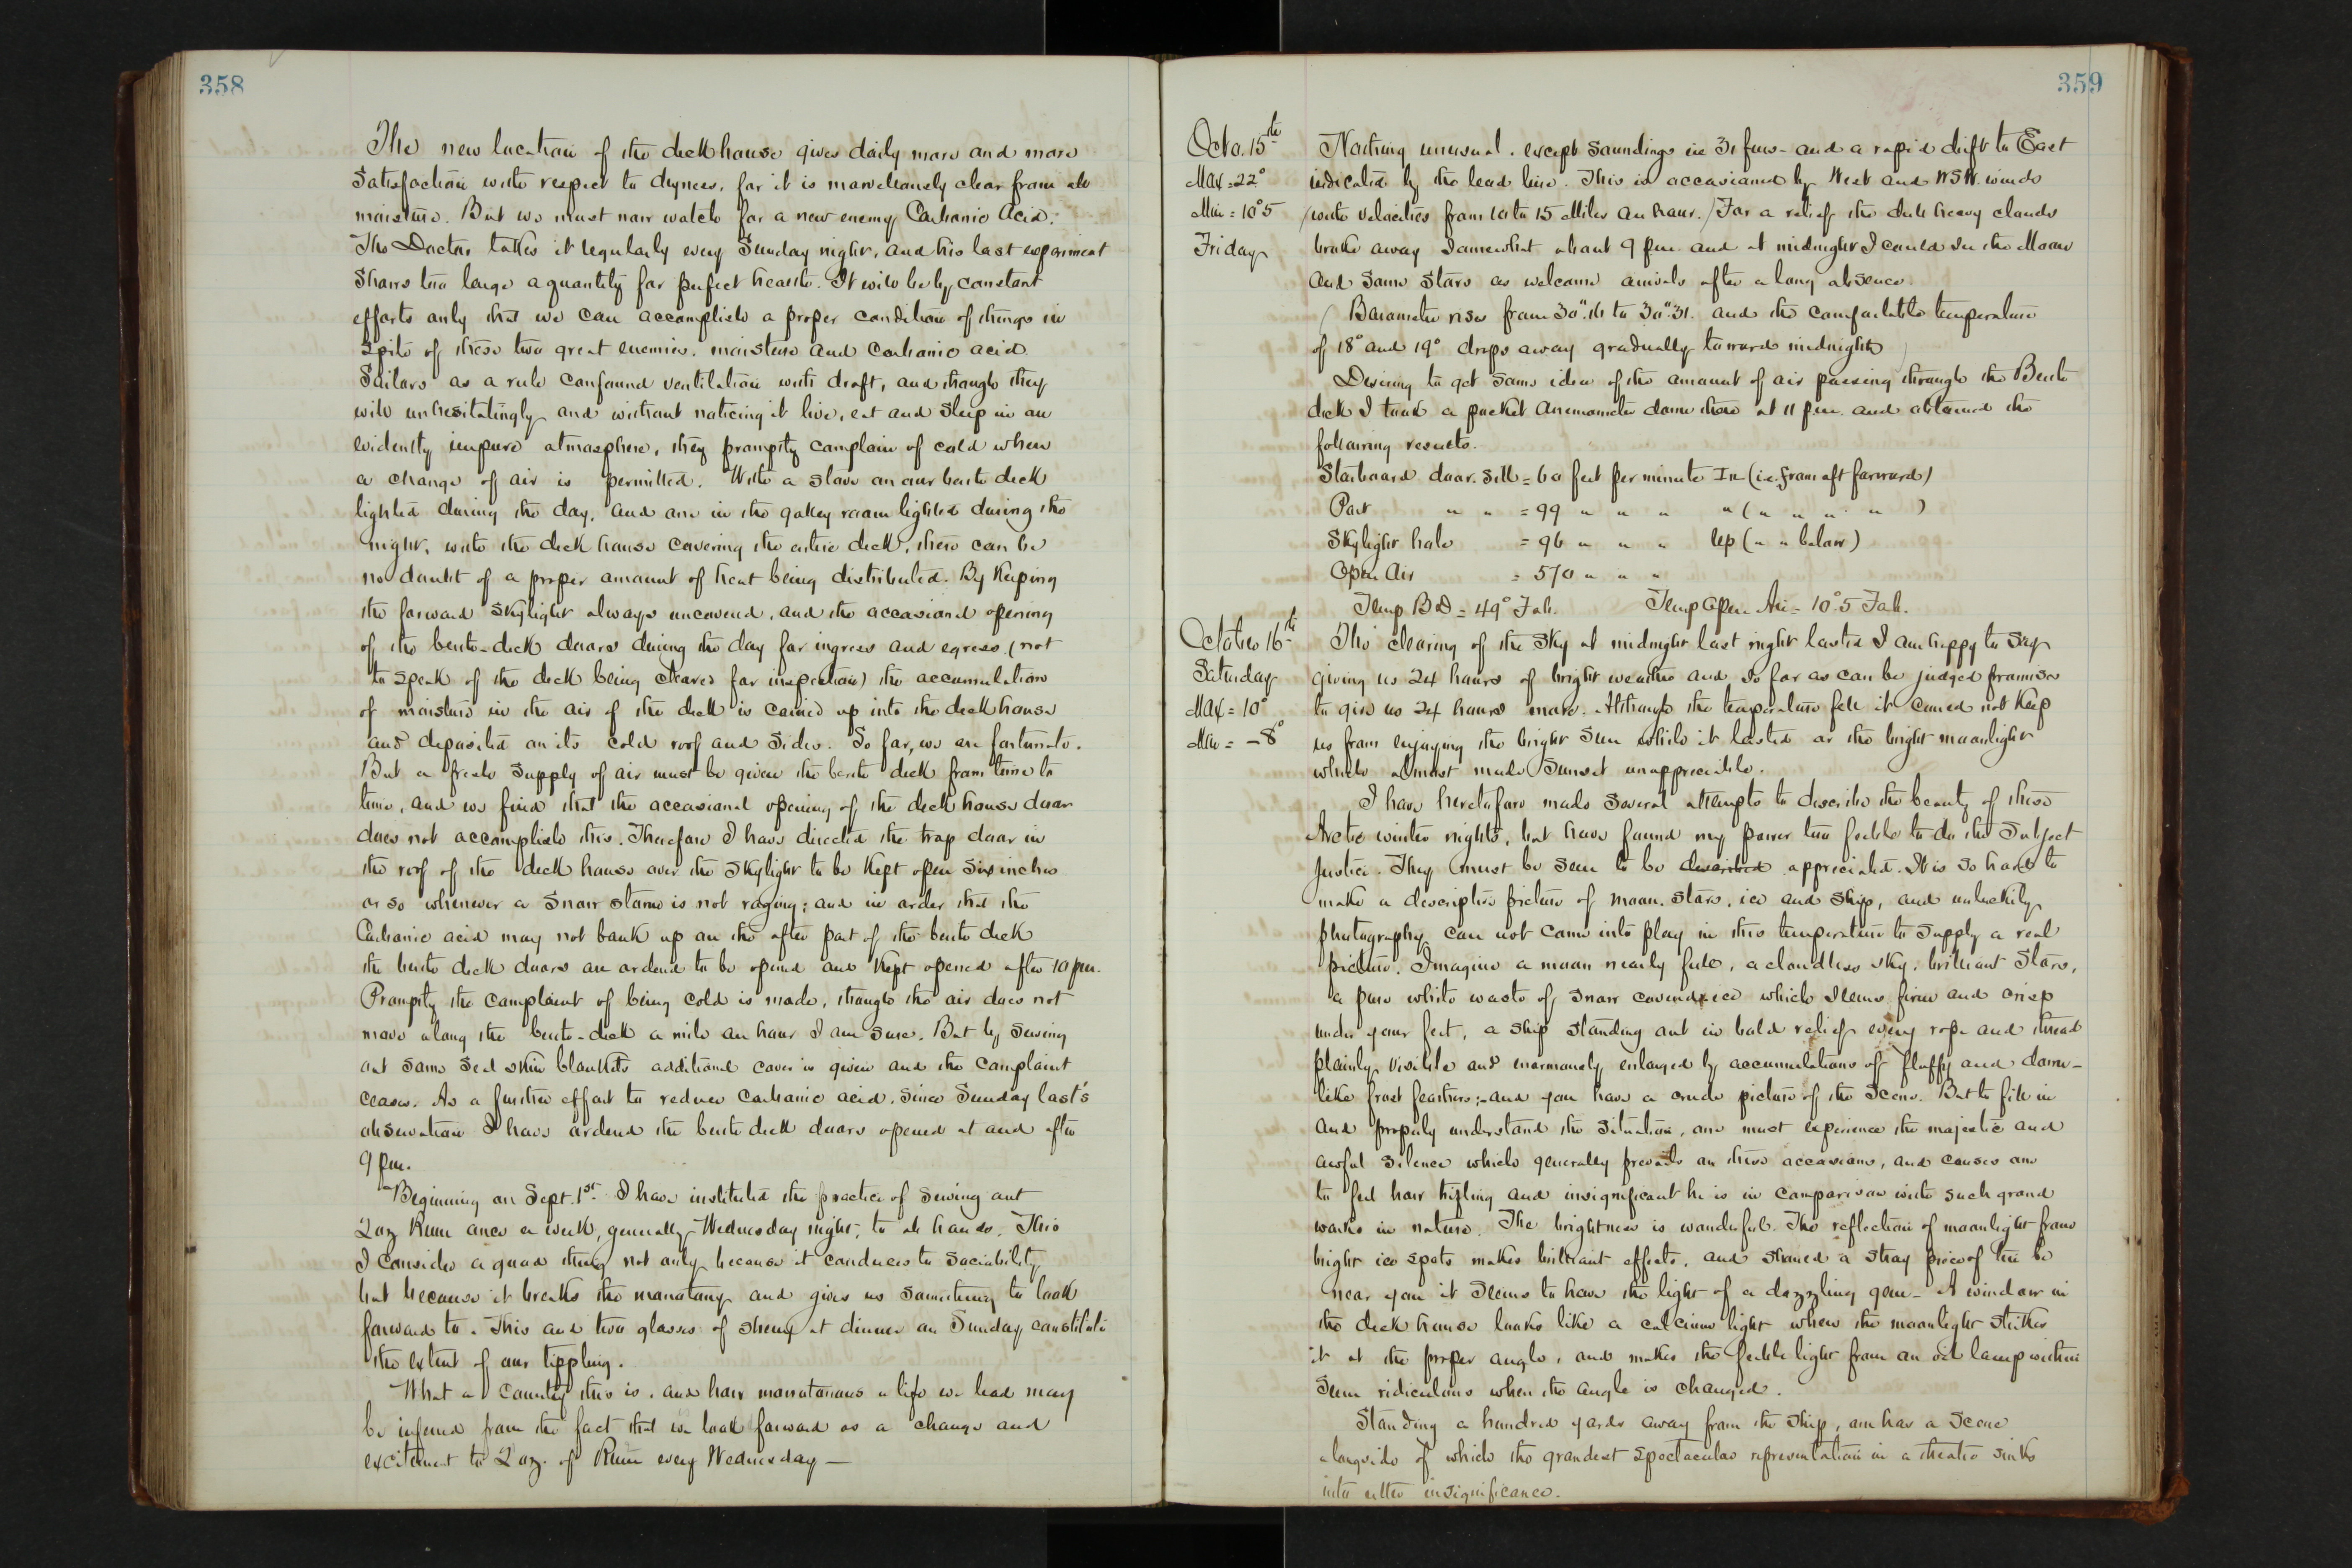 358
The new location of the deck house gives daily more and more
satisfaction with respect to dryness, for it is marvellously clear from all
moisture. But we must now watch for a new enemy Carbonic Acid.
The Doctor takes it regularly every Sunday night, and his last experiment
shows too large a quantity for perfect health. It will be by constant
efforts only that we can accomplish a proper condition of things in
spite of these two great enemies, moisture and Carbonic acid.
Sailors as a rule confound ventilation with draft, and though they
will unhesitatingly and without noticing it live, eat and sleep in an
evidently impure atmosphere, they promptly complain of cold when
a change of air is permitted. With a stove on our berth deck
lighted during the day, and one in the galley room lighted during the
night, with the deck house covering the entire deck, there can be
no doubt of a proper amount of heat being distributed. By Keeping
the forward skylight always uncovered, and the occasional opening
of the berth-deck doors during the day for ingress and egress (not
to speak of the deck being cleared for inspection) the accumulation
of moisture in the air of the deck is carried up into the deck house
and deposited on its cold roof and sides. So far, we are fortunate.
But a fresh supply of air must be given the berth deck from time to
time, and we find that the occasional opening of the deck house door
does not accomplish this. Therefore I have directed the trap door in
the roof of the deck house over the skylight to be Kept open six inches
or so whenever a snow storm is not raging; and in order that the
Carbonic acid may not bank up on the after part of the berth deck
the berth deck doors are ordered to be opened and Kept opened after 10 pm.
Promptly the complaint of being cold is made, though the air does not
move along the berth-deck a mile an hour I am sure. But by serving
out some seal skin blankets additional cover is given and the complaint
ceases. As a further effort to reduce carbonic acid, since Sunday last's
observation I have ordered the berth deck doors opened at and after
9 pm.
Beginning on Sept. 1st I have instituted the practice of serving out
2 oz Rum once a week, generally Wednesday night, to all hands. This
I consider a good thing not only because it conduces to sociability
but because it breaks the monotony and gives us something to look
forward to. This and two glasses of sherry at dinner on Sunday constitute
the extent of our tippling.
What a country this is, and how monotonous a life we lead may
be inferred from the fact that we look forward as a change and
excitement to 2 oz. of Rum every Wednesday —
359
Octo. 15th
Max = 22°
Min = 10°5
Friday
Nothing unusual, except soundings in 31 fms - and a rapid drift to East
indicated by the lead line. This is occasioned by West and WSW. winds
(with velocities from 10 to 15 Miles an hour.) For a relief the dull heavy clouds
broke away somewhat about 9 pm. and at midnight I could see the Moon
and some stars as welcome arrivals after a long absence.
(Barometer rises from 30".16 to 30".31. and the comfortable temperature
of 18° and 19° drops away gradually toward midnight)
Desiring to get some idea of the amount of air passing through the Berth
deck I took a pocket anemometer down there at 11 pm. and obtained the
following results.
Starboard door. sill = 60 feet per minute In (i.e. from aft forward)
Port " " = 99 " " " " (" " " " )
Skylight hole = 96 " " " Up (" " below)
Open Air = 570 " " "
Temp B D = 49° Fah. Temp Open Air = 10°.5 Fah.
October 16th
Saturday
Max = 10°
Min = -8°
The clearing of the sky at midnight last night lasted I am happy to say
giving us 24 hours of bright weather and so far as can be judged promises
to give us 24 hours more. Although the temperature fell it could not Keep
us from enjoying the bright sun while it lasted or the bright moonlight
which almost made sunset unappreciable.
I have heretofore made several attempts to describe the beauty of these
Arctic winter nights, but have found my power too feeble to do the subject
justice. They must be seen to be described appreciated. It is so hard to
make a descriptive picture of moon, stars, ice and ship, and unluckily
photography can not come into play in this temperature to supply a real
picture. Imagine a moon nearly full, a cloudless sky, brilliant stars,
a pure white waste of snow covered ice which seems firm and crisp
under your feet, a ship standing out in bold relief every rope and thread
plainly visible and enormously enlarged by accumulations of fluffy and down-
like frost feathers; and you have a crude picture of the scene. But to fill in
and properly understand the situation, one must experience the majestic and
awful silence which generally prevails on these occasions, and causes one
to feel how trifling and insignificant he is in comparison with such grand
works in nature. The brightness is wonderful. The reflection of moonlight from
bright ice spots makes brilliant effects, and should a stray piece of tin be
near you it seems to have the light of a dazzling gem - A window in
the deck house looks like a calcium light when the moonlight strikes
it at the proper angle, and makes the feeble light from an oil lamp within
seem ridiculous when the angle is changed.
Standing a hundred yards away from the ship, one has a scene
alongside of which the grandest spectacular representation in a theatre sinks
into utter insignificance.